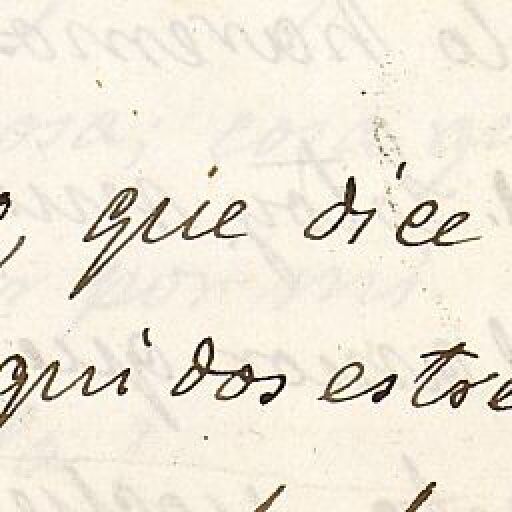 , que dice
qui dos estre